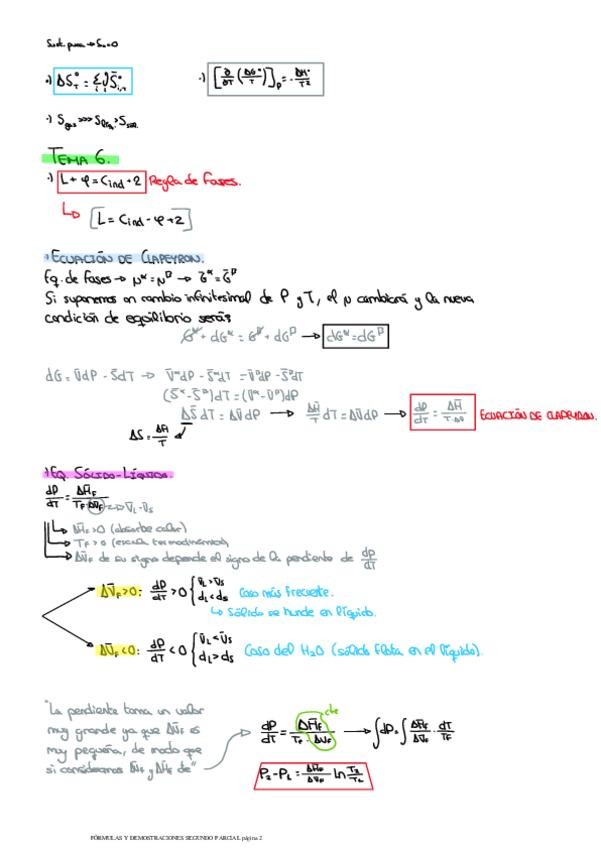 Sust. pura → S₀=0
•) ΔS°_T = Σ_i ν_i S̄°_{i,T}
•) [∂/∂T (ΔG°/T)]_P = -ΔH°/T²
•) S_gas >>> S_líq. > S_sol.
TEMA 6.
•) L + φ = C_ind + 2 Regla de Fases.
↳ L = C_ind - φ + 2
•) ECUACIÓN DE CLAPEYRON.
Eq. de Fases → μ^α = μ^β → Ḡ^α = Ḡ^β
Si suponemos un cambio infinitesimal de P y T, el μ cambiará y la nueva
condición de equilibrio será:
G^α + dG^α = G^β + dG^β → dG^α = dG^β
dG = V̄dP - S̄dT → V̄^αdP - S̄^αdT = V̄^βdP - S̄^βdT
(S̄^α - S̄^β)dT = (V̄^α - V̄^β)dP
ΔS̄ dT = ΔV̄dP → ΔH̄/T dT = ΔV̄dP → dP/dT = ΔH̄/T·ΔV̄ ECUACIÓN DE CLAPEYRON.
ΔS = ΔH/T
•) EQ. SÓLIDO-LÍQUIDO.
dP/dT = ΔH̄_F/T_F·ΔV̄_F → V̄_L - V̄_S
ΔH̄_F > 0 (absorbe calor)
T_F > 0 (escala termodinámica)
ΔV̄_F de su signo depende el signo de la pendiente de dP/dT
ΔV̄_F > 0: dP/dT > 0 { V̄_L > V̄_S Caso más frecuente.
d_L < d_S
↳ Sólido se hunde en líquido.
ΔV̄_F < 0: dP/dT < 0 { V̄_L < V̄_S Caso del H₂O (sólido flota en el líquido).
d_L > d_S
"La pendiente toma un valor
muy grande ya que ΔV̄_F es
muy pequeña, de modo que
si consideramos ΔV̄_F y ΔH̄_F cte"
cte
dP/dT = ΔH̄_F/T_F·ΔV̄_F → ∫dP = ∫ ΔH̄_F/ΔV̄_F · dT/T_F
P₂-P₁ = ΔH̄_F/ΔV̄_F ln
FÓRMULAS Y DEMOSTRACIONES SEGUNDO PARCIAL página 2